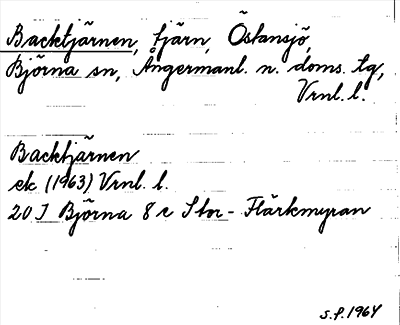 Backtjärnen, tjärn, Östansjö,
Björna sn, Ångermanl. n. doms. tg,
Vrnl. l.
Backtjärnen
ek (1963) Vrnl. l.
20 I Björna 8 c Stor-Flärkmyran
S.P. 1964